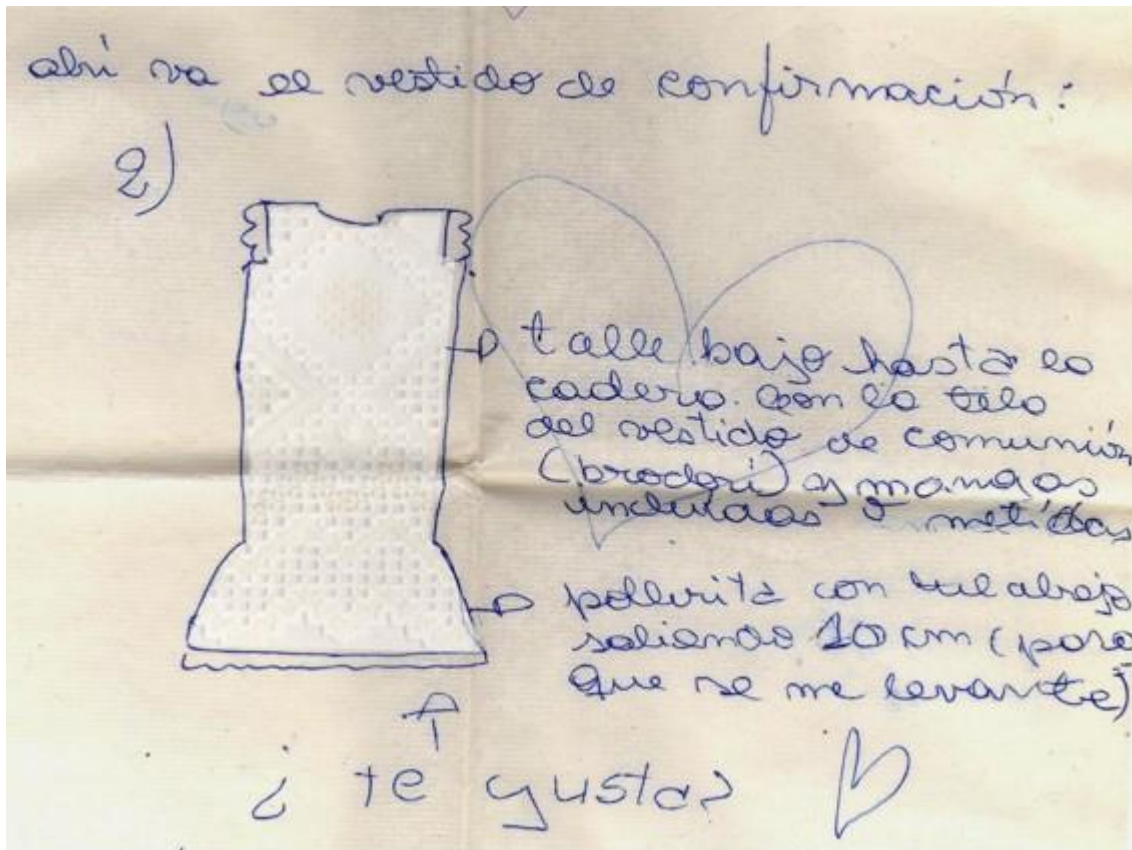 ahí va el vestido de confirmación:
2)
talle bajo hasta la
cadera. con la tela
del vestido de comunión
(broderí) y mangas
incluidas o metidas
pollerita con tul abajo
saliendo 10 cm (para
que se me levante)
¿te gusta?